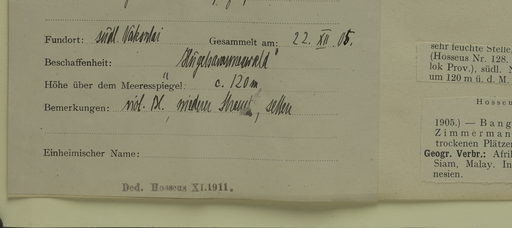 Fundort: südl. Wakontai Gesammelt am: 22. XII 05.
Beschaffenheit: „Hügelsavannenwald"
Höhe über dem Meeresspiegel: c. 120 m
Bemerkungen: viol. Bl., niederer Strauch, selten
Einheimischer Name:
Ded. Hosseus XI.1911.
sehr feuchte Stelle
(Hosseus Nr. 128.
lok Prov.), südl.
um 120 m ü. d. M.
Hosseu
1905.) — Bang
Zimmerman
trockenen Plätzen
Geogr. Verbr.: Afri
Siam, Malay. In
nesien.